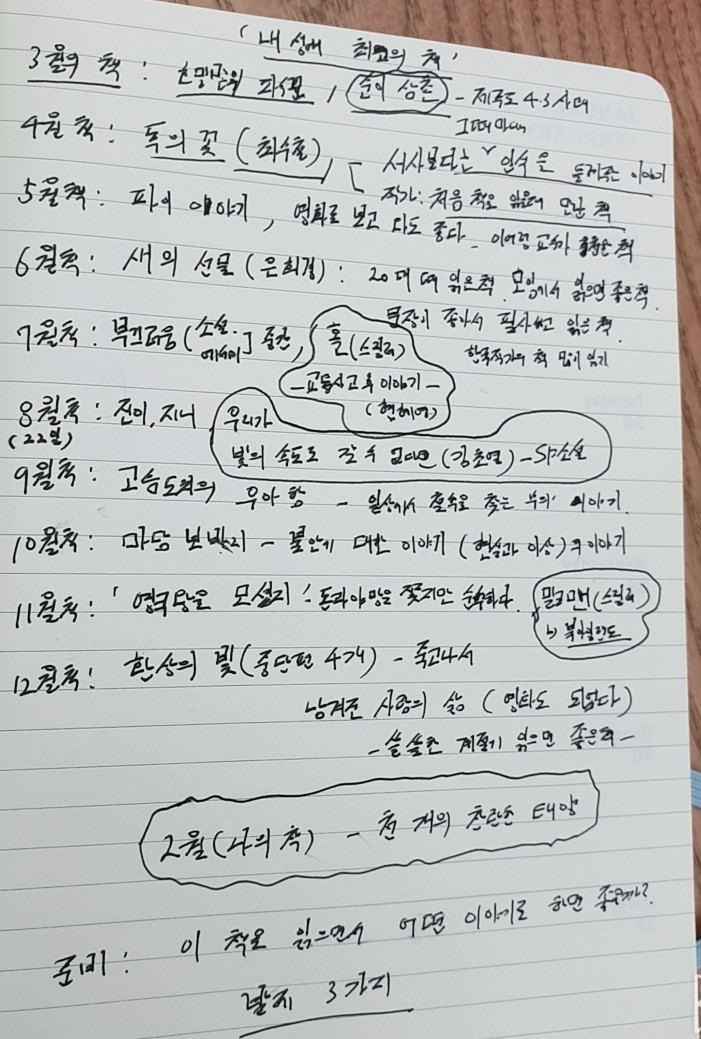 '내 생애 최고의 책'
3월의 책 : 희망찬 파괴, 순이 삼촌 - 제주도 4.3 사태
4월 책 : 독의 꽃 (최수철), 서사보다는 인식을 들려주는 이야기
작가: 처음 책을 읽을때 만난 책
5월책 : 파이 이야기, 영화로 보고 다도 좋다 - 이어령 교수가 책
6월책 : 새의 선물 (은희경) : 20대 때 읽은책. 모임에서 읽으면 좋은 책.
문장이 좋아서 필사하고 읽은 책.
7월책 : 부끄러움 (소설. 에세이] 중간, 홀 (스릴러)
한국작가의 책 많이 읽기
-교통사고 후 이야기-
(편혜영)
8월책 : 진이, 지니, 우리가
(22일) 빛의 속도로 갈 수 없다면 (김초엽) - SF소설
9월책 : 고슴도치의 우아함 - 일상에서 찾는 이야기.
10월책 : 마담 보바리 - 불안에 대한 이야기 (현실과 이상)의 이야기
11월책 : '영국왕을 모셨지' : 돈과 야망을 쫓지만 순수하다. 밀크맨 (스릴러)
↳ 북아일랜드
12월책 : 환상의 빛 (중단편 4개) - 죽고나서
남겨진 사람의 삶 (영화도 되었다)
- 쓸쓸한 계절에 읽으면 좋은책 -
2월 (나의 책) - 천 개의 찬란한 태양
준비 : 이 책을 읽으면서 어떤 이야기를 하면 좋을까?
발제 3가지